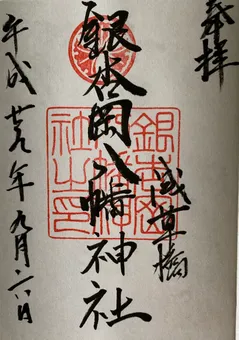 奉拝
浅草橋
銀杏岡八幡神社
銀杏岡
八幡神
社之印
平成廿九年九月 日